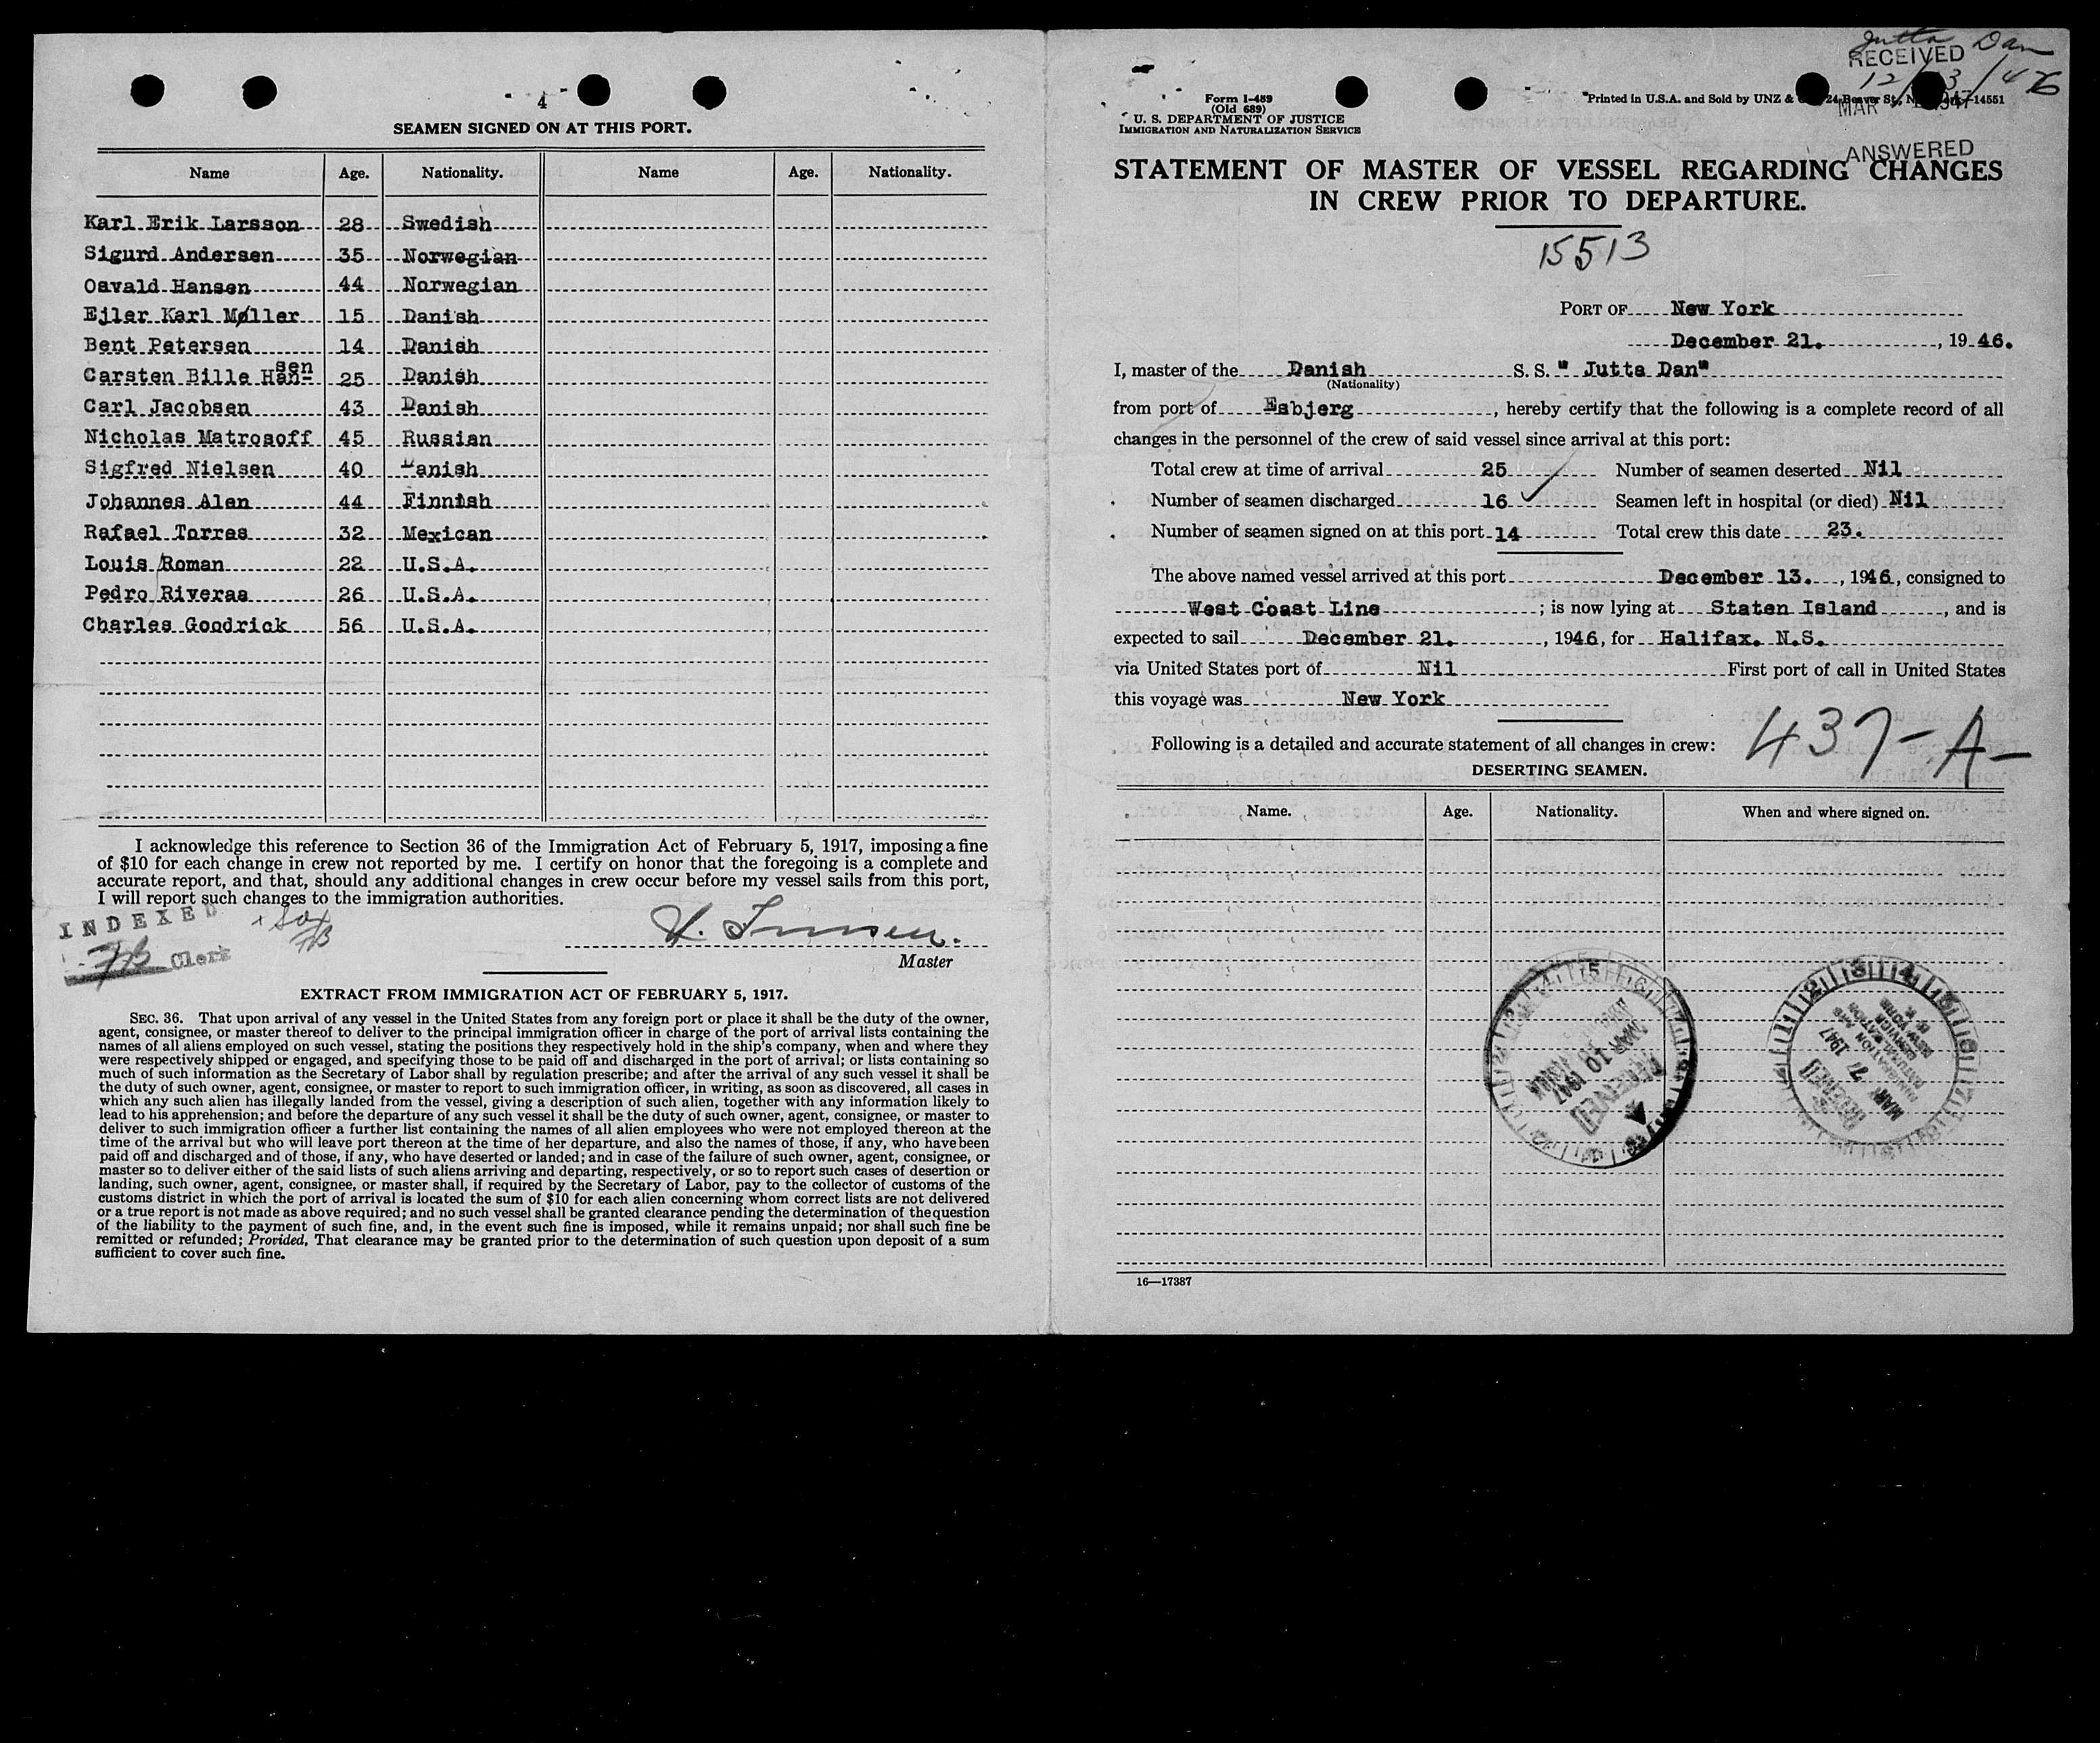 4
SEAMEN SIGNED ON AT THIS PORT.
Name Age. Nationality. Name Age. Nationality.
Karl Erik Larsson 28 Swedish
Sigurd Andersen 35 Norwegian
Osvald Hansen 44 Norwegian
Ejler Karl Møller 15 Danish
Bent Petersen 14 Danish
sen
Carsten Bille Han- 25 Danish
Carl Jacobsen 43 Danish
Nicholas Matrosoff 45 Russian
Sigfred Nielsen 40 Danish
Johannes Alen 44 Finnish
Rafael Torres 32 Mexican
Louis Roman 22 U.S.A.
Pedro Riveras 26 U.S.A.
Charles Goodrick 56 U.S.A.
I acknowledge this reference to Section 36 of the Immigration Act of February 5, 1917, imposing a fine
of $10 for each change in crew not reported by me. I certify on honor that the foregoing is a complete and
accurate report, and that, should any additional changes in crew occur before my vessel sails from this port,
I will report such changes to the immigration authorities.
INDEXED
Clerk
Master
EXTRACT FROM IMMIGRATION ACT OF FEBRUARY 5, 1917.
SEC. 36. That upon arrival of any vessel in the United States from any foreign port or place it shall be the duty of the owner,
agent, consignee, or master thereof to deliver to the principal immigration officer in charge of the port of arrival lists containing the
names of all aliens employed on such vessel, stating the positions they respectively hold in the ship's company, when and where they
were respectively shipped or engaged, and specifying those to be paid off and discharged in the port of arrival; or lists containing so
much of such information as the Secretary of Labor shall by regulation prescribe; and after the arrival of any such vessel it shall be
the duty of such owner, agent, consignee, or master to report to such immigration officer, in writing, as soon as discovered, all cases in
which any such alien has illegally landed from the vessel, giving a description of such alien, together with any information likely to
lead to his apprehension; and before the departure of any such vessel it shall be the duty of such owner, agent, consignee, or master to
deliver to such immigration officer a further list containing the names of all alien employees who were not employed thereon at the
time of the arrival but who will leave port thereon at the time of her departure, and also the names of those, if any, who have been
paid off and discharged and of those, if any, who have deserted or landed; and in case of the failure of such owner, agent, consignee, or
master so to deliver either of the said lists of such aliens arriving and departing, respectively, or so to report such cases of desertion or
landing, such owner, agent, consignee, or master shall, if required by the Secretary of Labor, pay to the collector of customs of the
customs district in which the port of arrival is located the sum of $10 for each alien concerning whom correct lists are not delivered
or a true report is not made as above required; and no such vessel shall be granted clearance pending the determination of the question
of the liability to the payment of such fine, and, in the event such fine is imposed, while it remains unpaid; nor shall such fine be
remitted or refunded; Provided, That clearance may be granted prior to the determination of such question upon deposit of a sum
sufficient to cover such fine.
Jutta Dan
RECEIVED
12/13/46
MAR 1947
ANSWERED
Form I-489
(Old 689)
U. S. DEPARTMENT OF JUSTICE
IMMIGRATION AND NATURALIZATION SERVICE
Printed in U.S.A. and Sold by UNZ & 24 Beaver St., 14551
STATEMENT OF MASTER OF VESSEL REGARDING CHANGES
IN CREW PRIOR TO DEPARTURE.
15513
PORT OF New York
December 21. , 1946.
I, master of the Danish S. S. " Jutta Dan"
(Nationality)
from port of Esbjerg , hereby certify that the following is a complete record of all
changes in the personnel of the crew of said vessel since arrival at this port:
Total crew at time of arrival 25 Number of seamen deserted Nil
Number of seamen discharged 16 ✓ Seamen left in hospital (or died) Nil
Number of seamen signed on at this port 14 Total crew this date 23.
The above named vessel arrived at this port December 13. , 1946, consigned to
West Coast Line ; is now lying at Staten Island , and is
expected to sail December 21. , 1946, for Halifax. N.S.
via United States port of Nil First port of call in United States
this voyage was New York
437-A-
Following is a detailed and accurate statement of all changes in crew:
DESERTING SEAMEN.
Name. Age. Nationality. When and where signed on.
RECEIVED
MAR 10 1947
RECEIVED
MAR 7 1947
16—17387